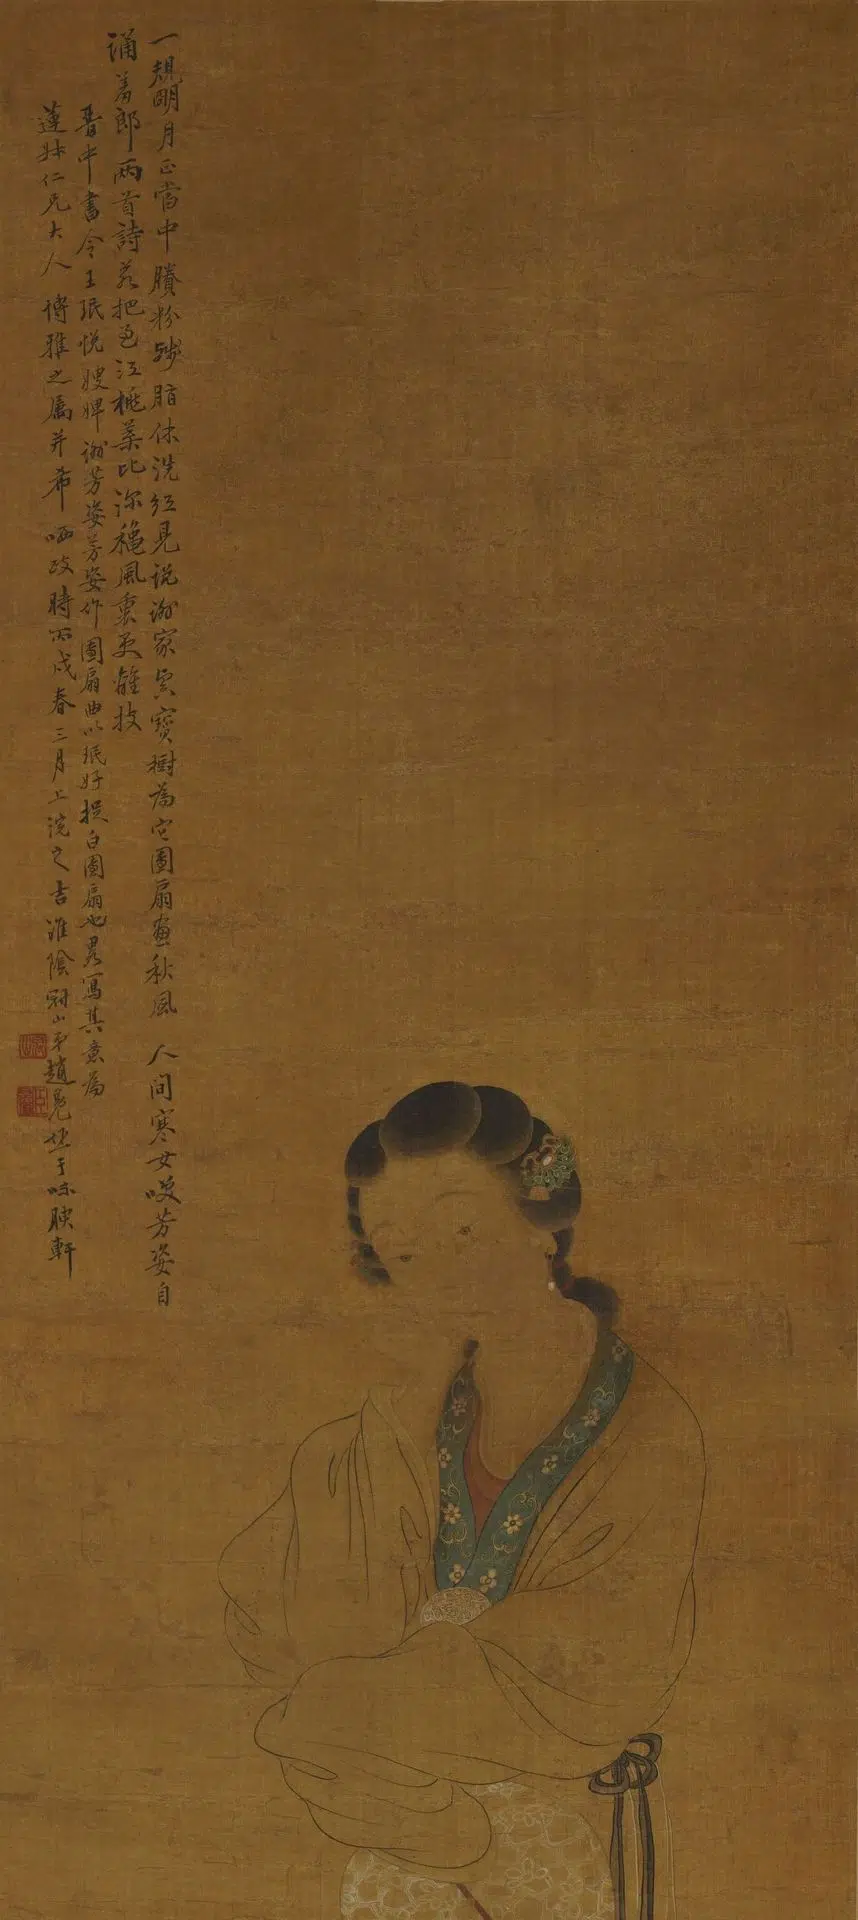 一規明月正當中賸粉殘脂休洗紅見說謝家真寶樹為它團扇畫秋風 人間寒女唉芳姿自
誦羞郎兩首詩若把包江桃葉比深穠風裏更難技
晉中書令王珉悅嫂婢謝芳姿芳姿作團扇曲以珉好捉白團扇也畧寫其意為
蓮姊仁兄大人 博雅之屬并希 哂政時丙戌春三月上浣之吉淮陰冠山弟趙 于 腴軒